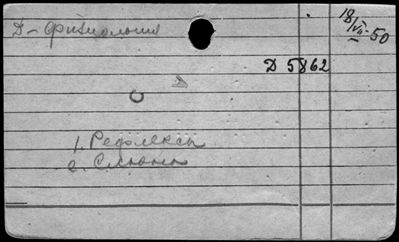 Д - Физиология
18/VII-50
Д 5862
1. Рефлексы
2. Слюна